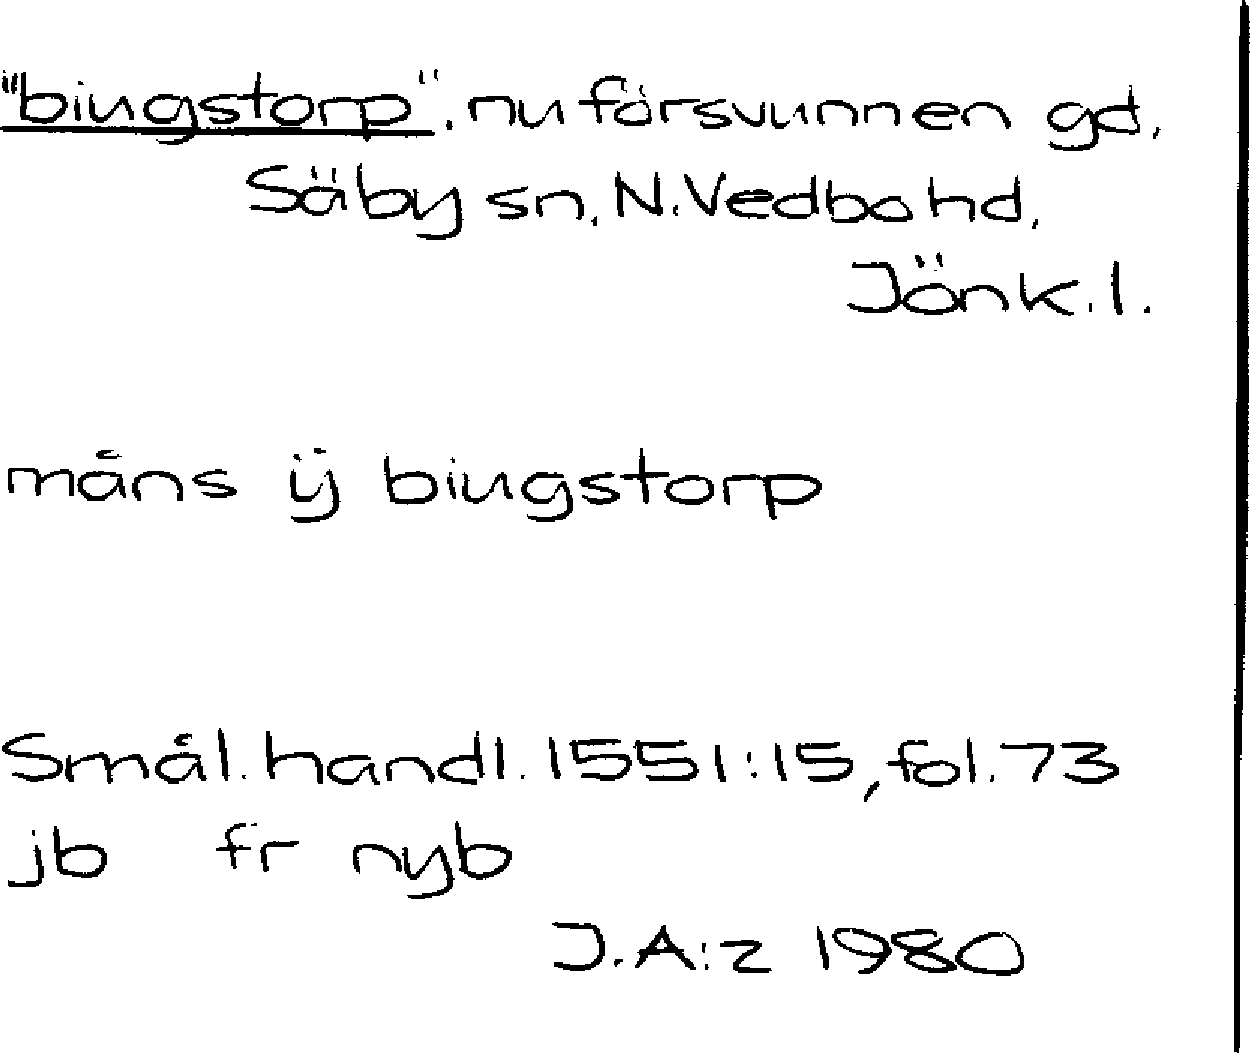 "biugstorp". nu försvunnen gd,
Säby sn, N. Vedbo hd,
Jönk. l.
måns ÿ biugstorp
Smål. handl. 1551:15, fol. 73
jb fr nyb
J.A:z 1980